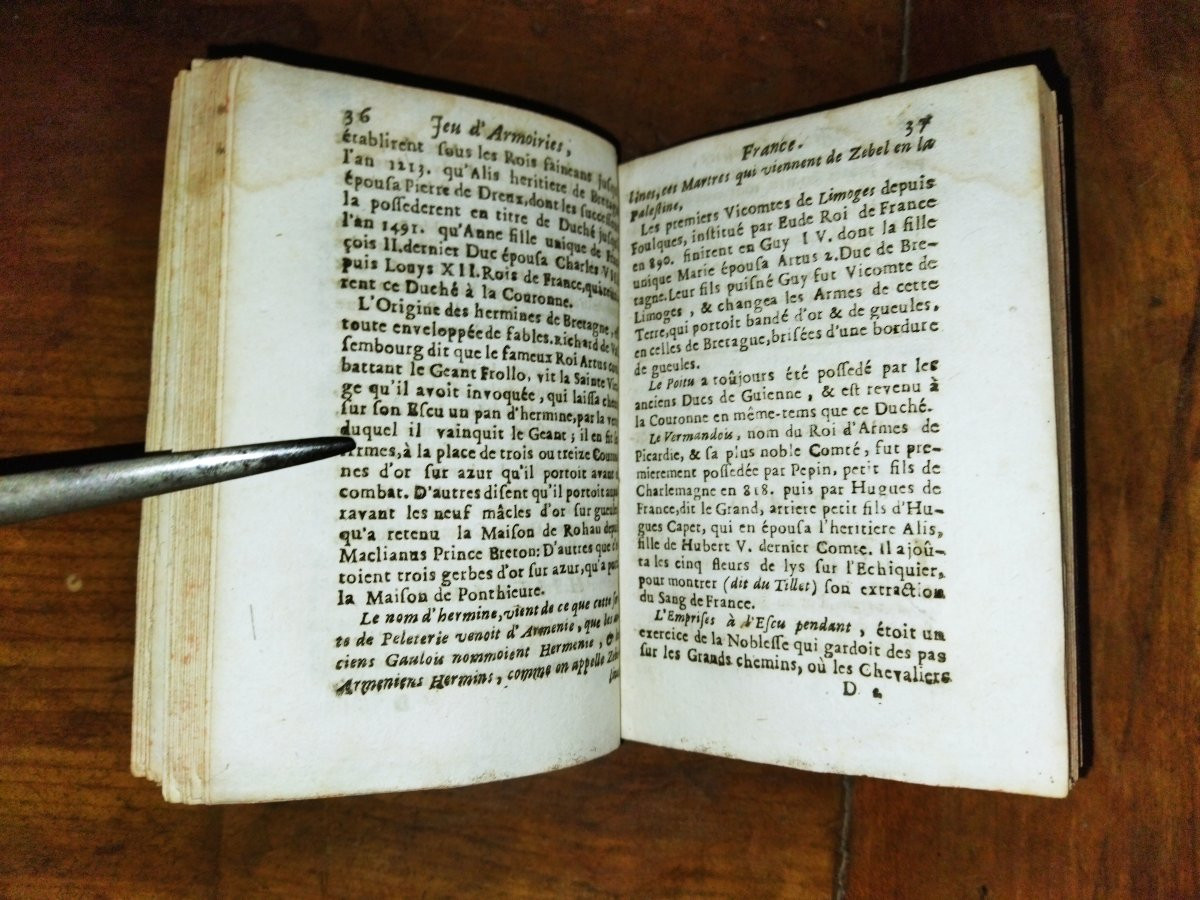 36 Jeu d'Armoiries,
établirent sous les Rois faineans
l'an 1213. qu'Alis heritiere de
épousa Pierre de Dreux, dont les
la possederent en titre de Duché
l'an 1491. qu'Anne fille unique de
çois II. dernier Duc épousa Charles
puis Louys XII. Rois de France,
rent ce Duché à la Couronne.
L'Origine des hermines de Bretagne,
toute enveloppée de fables. Richard de
sembourg dit que le fameux Roi Artus
battant le Geant Frollo, vit la Sainte
ge qu'il avoit invoquée, qui laissa
sur son Escu un pan d'hermine, par la
duquel il vainquit le Geant; il en fit
Armes, à la place de trois ou treize
nes d'or sur azur qu'il portoit
combat. D'autres disent qu'il portoit
ravant les neuf mâcles d'or sur
qu'a retenu la Maison de Rohan
Maclianus Prince Breton: D'autres
toient trois gerbes d'or sur azur, qu'a
la Maison de Ponthieure.
Le nom d'hermine, vient de ce que cette
te de Peleterie venoit d'Armenie, que les
ciens Gaulois nommoient Hermenie,
Armeniens Hermins, comme on appelle
France. 37
lines, ces Martres qui viennent de Zebel en la
Palestine,
Les premiers Vicomtes de Limoges depuis
Foulques, institué par Eude Roi de France
en 890. finirent en Guy IV. dont la fille
unique Marie épousa Artus 2. Duc de Bre-
tagne. Leur fils puisné Guy fut Vicomte de
Limoges, & changea les Armes de cette
Terre, qui portoit bandé d'or & de gueules,
en celles de Bretagne, brisées d'une bordure
de gueules.
Le Poitu a toûjours été possedé par les
anciens Ducs de Guienne, & est revenu à
la Couronne en même-tems que ce Duché.
Le Vermandois, nom du Roi d'Armes de
Picardie, & sa plus noble Comté, fut pre-
mierement possedée par Pepin, petit fils de
Charlemagne en 818. puis par Hugues de
France, dit le Grand, arriere petit fils d'Hu-
gues Capet, qui en épousa l'heritiere Alis,
fille de Hubert V. dernier Comte. Il ajoû-
ta les cinq fleurs de lys sur l'Echiquier,
pour montrer (dit du Tillet) son extraction
du Sang de France.
L'Emprises à l'Escu pendant, étoit un
exercice de la Noblesse qui gardoit des pas
sur les Grands chemins, où les Chevaliers
D